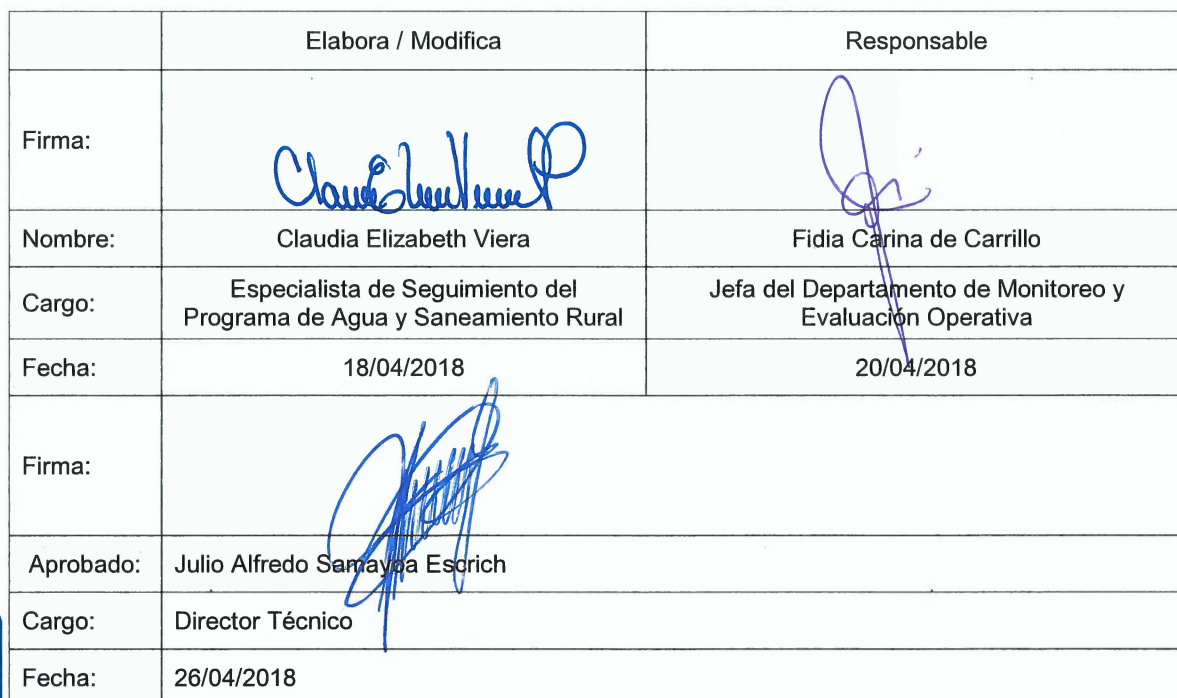 Elabora / Modifica Responsable
Firma:
Nombre: Claudia Elizabeth Viera Fidia Carina de Carrillo
Cargo: Especialista de Seguimiento del Programa de Agua y Saneamiento Rural Jefa del Departamento de Monitoreo y Evaluación Operativa
Fecha: 18/04/2018 20/04/2018
Firma:
Aprobado: Julio Alfredo Samayoa Escrich
Cargo: Director Técnico
Fecha: 26/04/2018